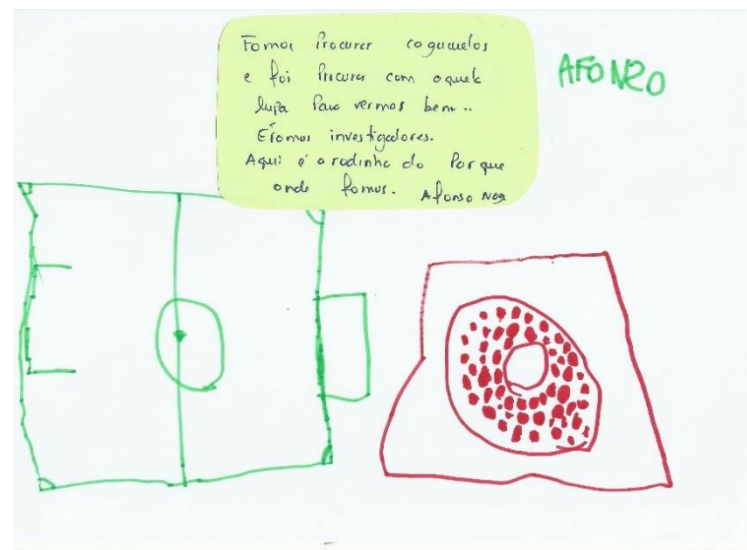 Fomos Procurar cogumelos
e foi Procurar com aquela
lupa Para vermos bem..
Éramos investigadores.
Aqui é a rodinha do Parque
onde fomos. Afonso
AFONSO